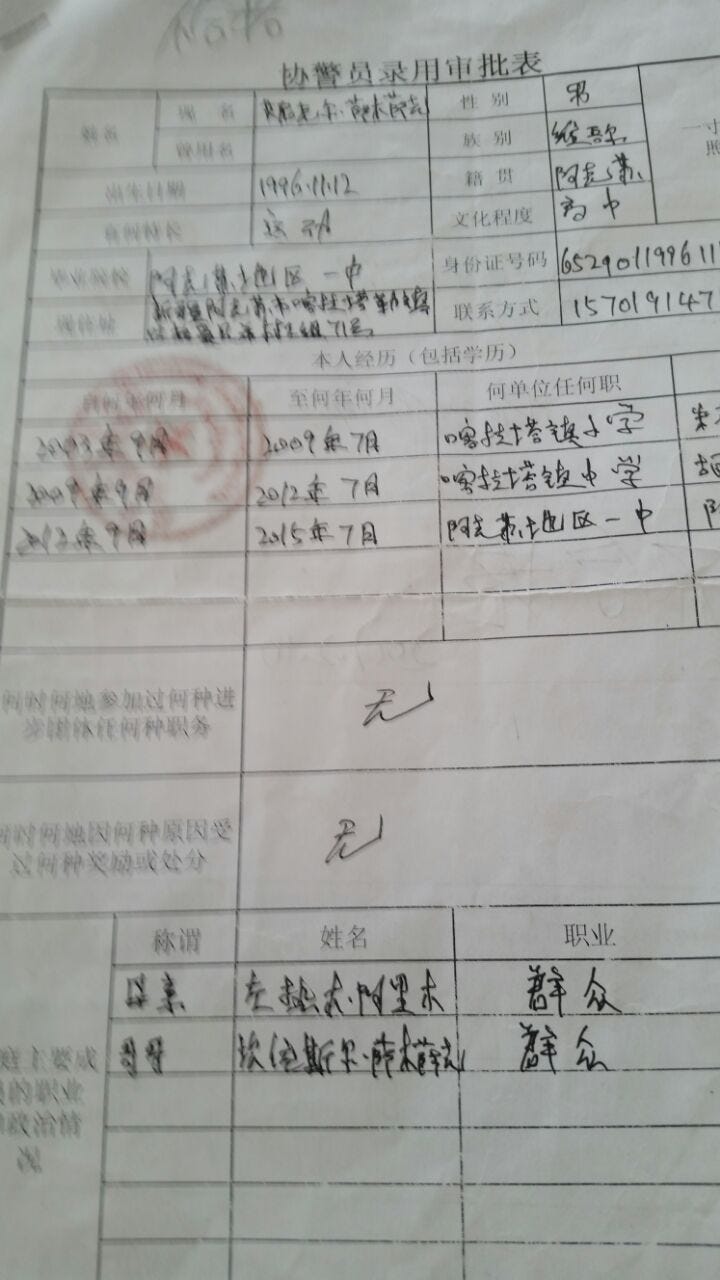 协警员录用审批表
姓名 现 名 性 别 男
曾用名 族 别 维吾尔
出生日期 1996.11.12 籍 贯 阿克苏
有何特长 运动 文化程度 高中
毕业院校 阿克苏地区一中 身份证号码 652901199611
现住址 联系方式 157019147
本人经历（包括学历）
自何年何月 至何年何月 何单位任何职
2003年9月 2009年7月 喀拉塔镇小学
2009年9月 2012年7月 喀拉塔镇中学
2012年9月 2015年7月 阿克苏地区一中
何时何地参加过何种进
步团体任何种职务 无
何时何地因何种原因受
过何种奖励或处分 无
称谓 姓名 职业
母亲 阿里木 群众
哥哥 群众
庭主要成
的职业
政治情
况